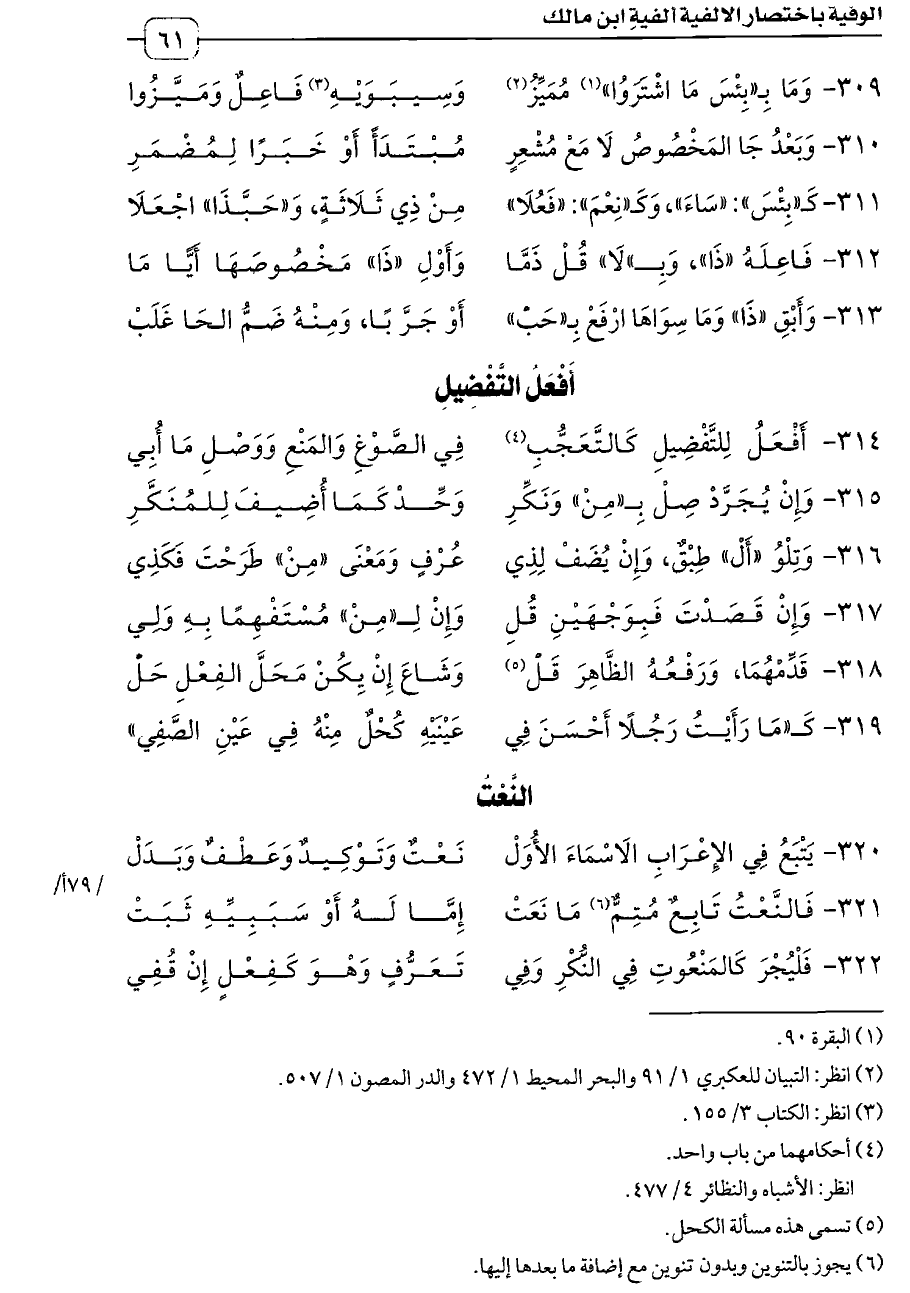 الوفية باختصار الألفية ألفية ابن مالك
٦١
٣٠٩- وَمَا بِـ«بِئْسَ مَا اشْتَرَوْا»(١) مُمَيِّزُ(٢) وَسِيبَوَيْهِ(٣) فَاعِلٌ وَمَيَّزُوا
٣١٠- وَبَعْدُ جَا المَخْصُوصُ لَا مَعْ مُشْعِرِ مُبْتَدَأً أَوْ خَبَرًا لِمُضْمَرِ
٣١١- كَـ«بِئْسَ»: «سَاءَ»، وَكَـ«نِعْمَ»: «فَعُلَا» مِنْ ذِي ثَلَاثَةٍ، وَ«حَبَّذَا» اجْعَلَا
٣١٢- فَاعِلَهُ «ذَا»، وَبِـ«لَا» قُلْ ذَمَّا وَأَوْلِ «ذَا» مَخْصُوصَهَا أَيًّا مَا
٣١٣- وَأَبْقِ «ذَا» وَمَا سِوَاهَا ارْفَعْ بِـ«حَبْ» أَوْ جَرَّ بَا، وَمِنْهُ ضَمُّ الحَا غَلَبْ
أَفْعَلُ التَّفْضِيلِ
٣١٤- أَفْعَلُ لِلتَّفْضِيلِ كَالتَّعَجُّبِ(٤) فِي الصَّوْغِ وَالمَنْعِ وَوَصْلِ مَا أُبِي
٣١٥- وَإِنْ يُجَرَّدْ صِلْ بِـ«مِنْ» وَنَكِّرِ وَحِّدْ كَمَا أُضِيفَ لِلمُنَكَّرِ
٣١٦- وَتِلْوُ «أَلْ» طِبْقٌ، وَإِنْ يُضَفْ لِذِي عُرْفٍ وَمَعْنَى «مِنْ» طَرَحْتَ فَكَذِي
٣١٧- وَإِنْ قَصَدْتَ فَبِوَجْهَيْنِ قُلِ وَإِنْ لِـ«مِنْ» مُسْتَفْهِمًا بِهِ وَلِي
٣١٨- قَدِّمْهُمَا، وَرَفْعُهُ الظَّاهِرَ قَلْ(٥) وَشَاعَ إِنْ يَكُنْ مَحَلَّ الفِعْلِ حَلْ
٣١٩- كَـ«مَا رَأَيْتُ رَجُلًا أَحْسَنَ فِي عَيْنَيْهِ كُحْلٌ مِنْهُ فِي عَيْنِ الصَّفِي»
النَّعْتُ
٣٢٠- يَتْبَعُ فِي الإِعْرَابِ الاسْمَاءَ الأُوَلْ نَعْتٌ وَتَوْكِيدٌ وَعَطْفٌ وَبَدَلْ
/٧٩أ/
٣٢١- فَالنَّعْتُ تَابِعٌ مُتِمٌّ(٦) مَا نَعَتْ إِمَّا لَهُ أَوْ سَبَبِيِّهِ ثَبَتْ
٣٢٢- فَلْيُجْرَ كَالمَنْعُوتِ فِي النُّكْرِ وَفِي تَعَرُّفٍ وَهْوَ كَفِعْلٍ إِنْ قُفِي
(١) البقرة ٩٠.
(٢) انظر: التبيان للعكبري ١/ ٩١ والبحر المحيط ١/ ٤٧٢ والدر المصون ١/ ٥٠٧.
(٣) انظر: الكتاب ٣/ ١٥٥.
(٤) أحكامهما من باب واحد.
انظر: الأشباه والنظائر ٤/ ٤٧٧.
(٥) تسمى هذه مسألة الكحل.
(٦) يجوز بالتنوين وبدون تنوين مع إضافة ما بعدها إليها.